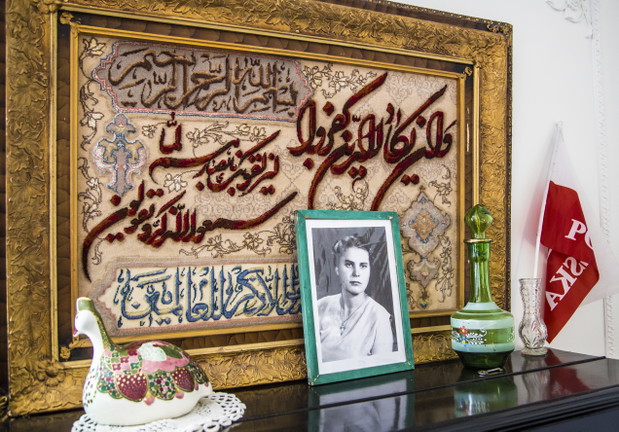 بسم الله الرحمن الرحيم
وان يكاد الذين كفروا
ليزلقونك بابصارهم لما
سمعوا الذكر و يقولون
الا ذكر للعالمين
PO
SKA